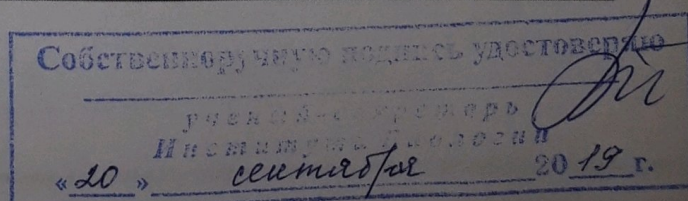 Собственноручную подпись удостоверяю
ученый секретарь
Института биологии
«20» сентября 2019 г.